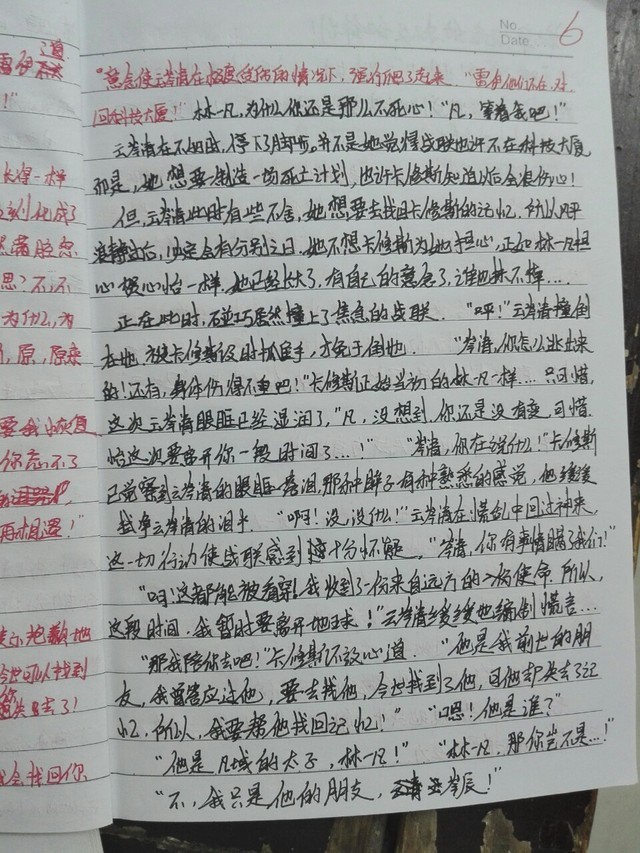 No.
Date
6
道
雷伊
!"
长得一样
变
剑化成了
然满脸忽
思?不,不
为什么,为
,原,原来
要我恢复
你忘不了
再相遇!"
示抱歉地
今世可以找到
失去了!
会找回你
"意念使云岑清在极度受伤的情况下,强行爬了起来。"雷伊他们还在赶
回科技大厦!"林一凡,为什么你还是那么不死心!"凡,等着我吧!"
云岑清在不知时,停下了脚步。并不是她觉得战联也许不在科技大厦
而是,她想要制造一场死亡计划,也许卡修斯知道以后会很伤心!
但,云岑清此时有些不舍,她想要去找回卡修斯的记忆,所以风平
浪静过后,决定会有分别之日,她不想卡修斯为她担心,正如林一凡担
心楼心怡一样,她已经长大了,有自己的意念了,谁也抹不掉....
正在此时,石岩巧居然撞上了焦急的战联。"呼!"云岑清撞倒
在地,被卡修斯及时抓住手,才免于倒地。"岑清,你怎么逃出来
的!还有,身体伤得不重吧!"卡修斯正如当初的林一凡一样....只可惜,
这次云岑清眼眶已经湿润了,"凡,没想到,你还是没有变,可惜,
怕这次要离开你一段时间了...!""岑清,你在说什么!"卡修斯
已觉察到云岑清的眼眶落泪,那种眸子有种熟悉的感觉,他缓缓
拭净云岑清的泪水。"啊!没,没什么!"云岑清在慌乱中回过神来,
这一切行动使战联感到十分怀疑。"岑清,你有事情瞒了我们!"
"呀!这都能被看穿!我收到了一份来自远方的使命,所以,
这段时间,我暂时要离开地球!"云岑清缓缓地编制谎言...
"那我陪你去吧!"卡修斯不放心道。"他是我前世的朋
友,我曾答应过他,要去找他,今世找到了他,可他却失去了记
忆,所以,我要帮他找回记忆!""嗯!他是谁?"
"他是凡域的太子,林一凡!""林一凡,那你岂不是...!"
"不,我只是他的朋友,云岑辰!"